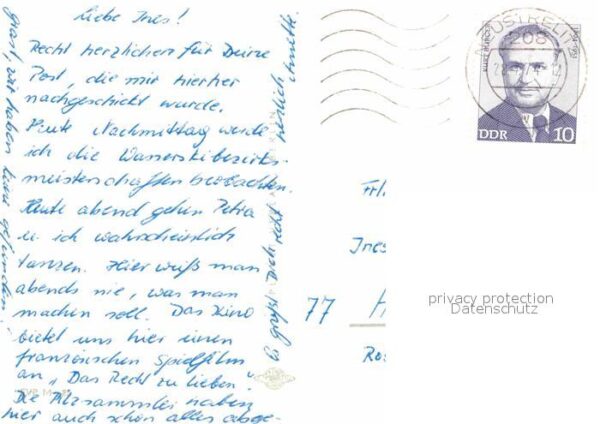 Liebe Ines!
Recht herzlichen für Deine
Post, die mir hierher
nachgeschickt wurde.
Heute Nachmittag werde
ich die Wasserskibezirks-
meisterschaften beobachten.
Heute abend gehen Petra
u. ich wahrscheinlich
tanzen. Hier weiß man
abends nie, was man
machen soll. Das Kino
bietet uns hier einen
französischen Spielfilm
an „Das Recht zu lieben".
Die Pilzsammler haben
hier auch schon alles abge-
grast, wir haben kaum gefunden.
Es grüßt Dich recht herzlich
Annette
Frl.
Ines
77
Ros
208
DDR 10
privacy protection
Datenschutz